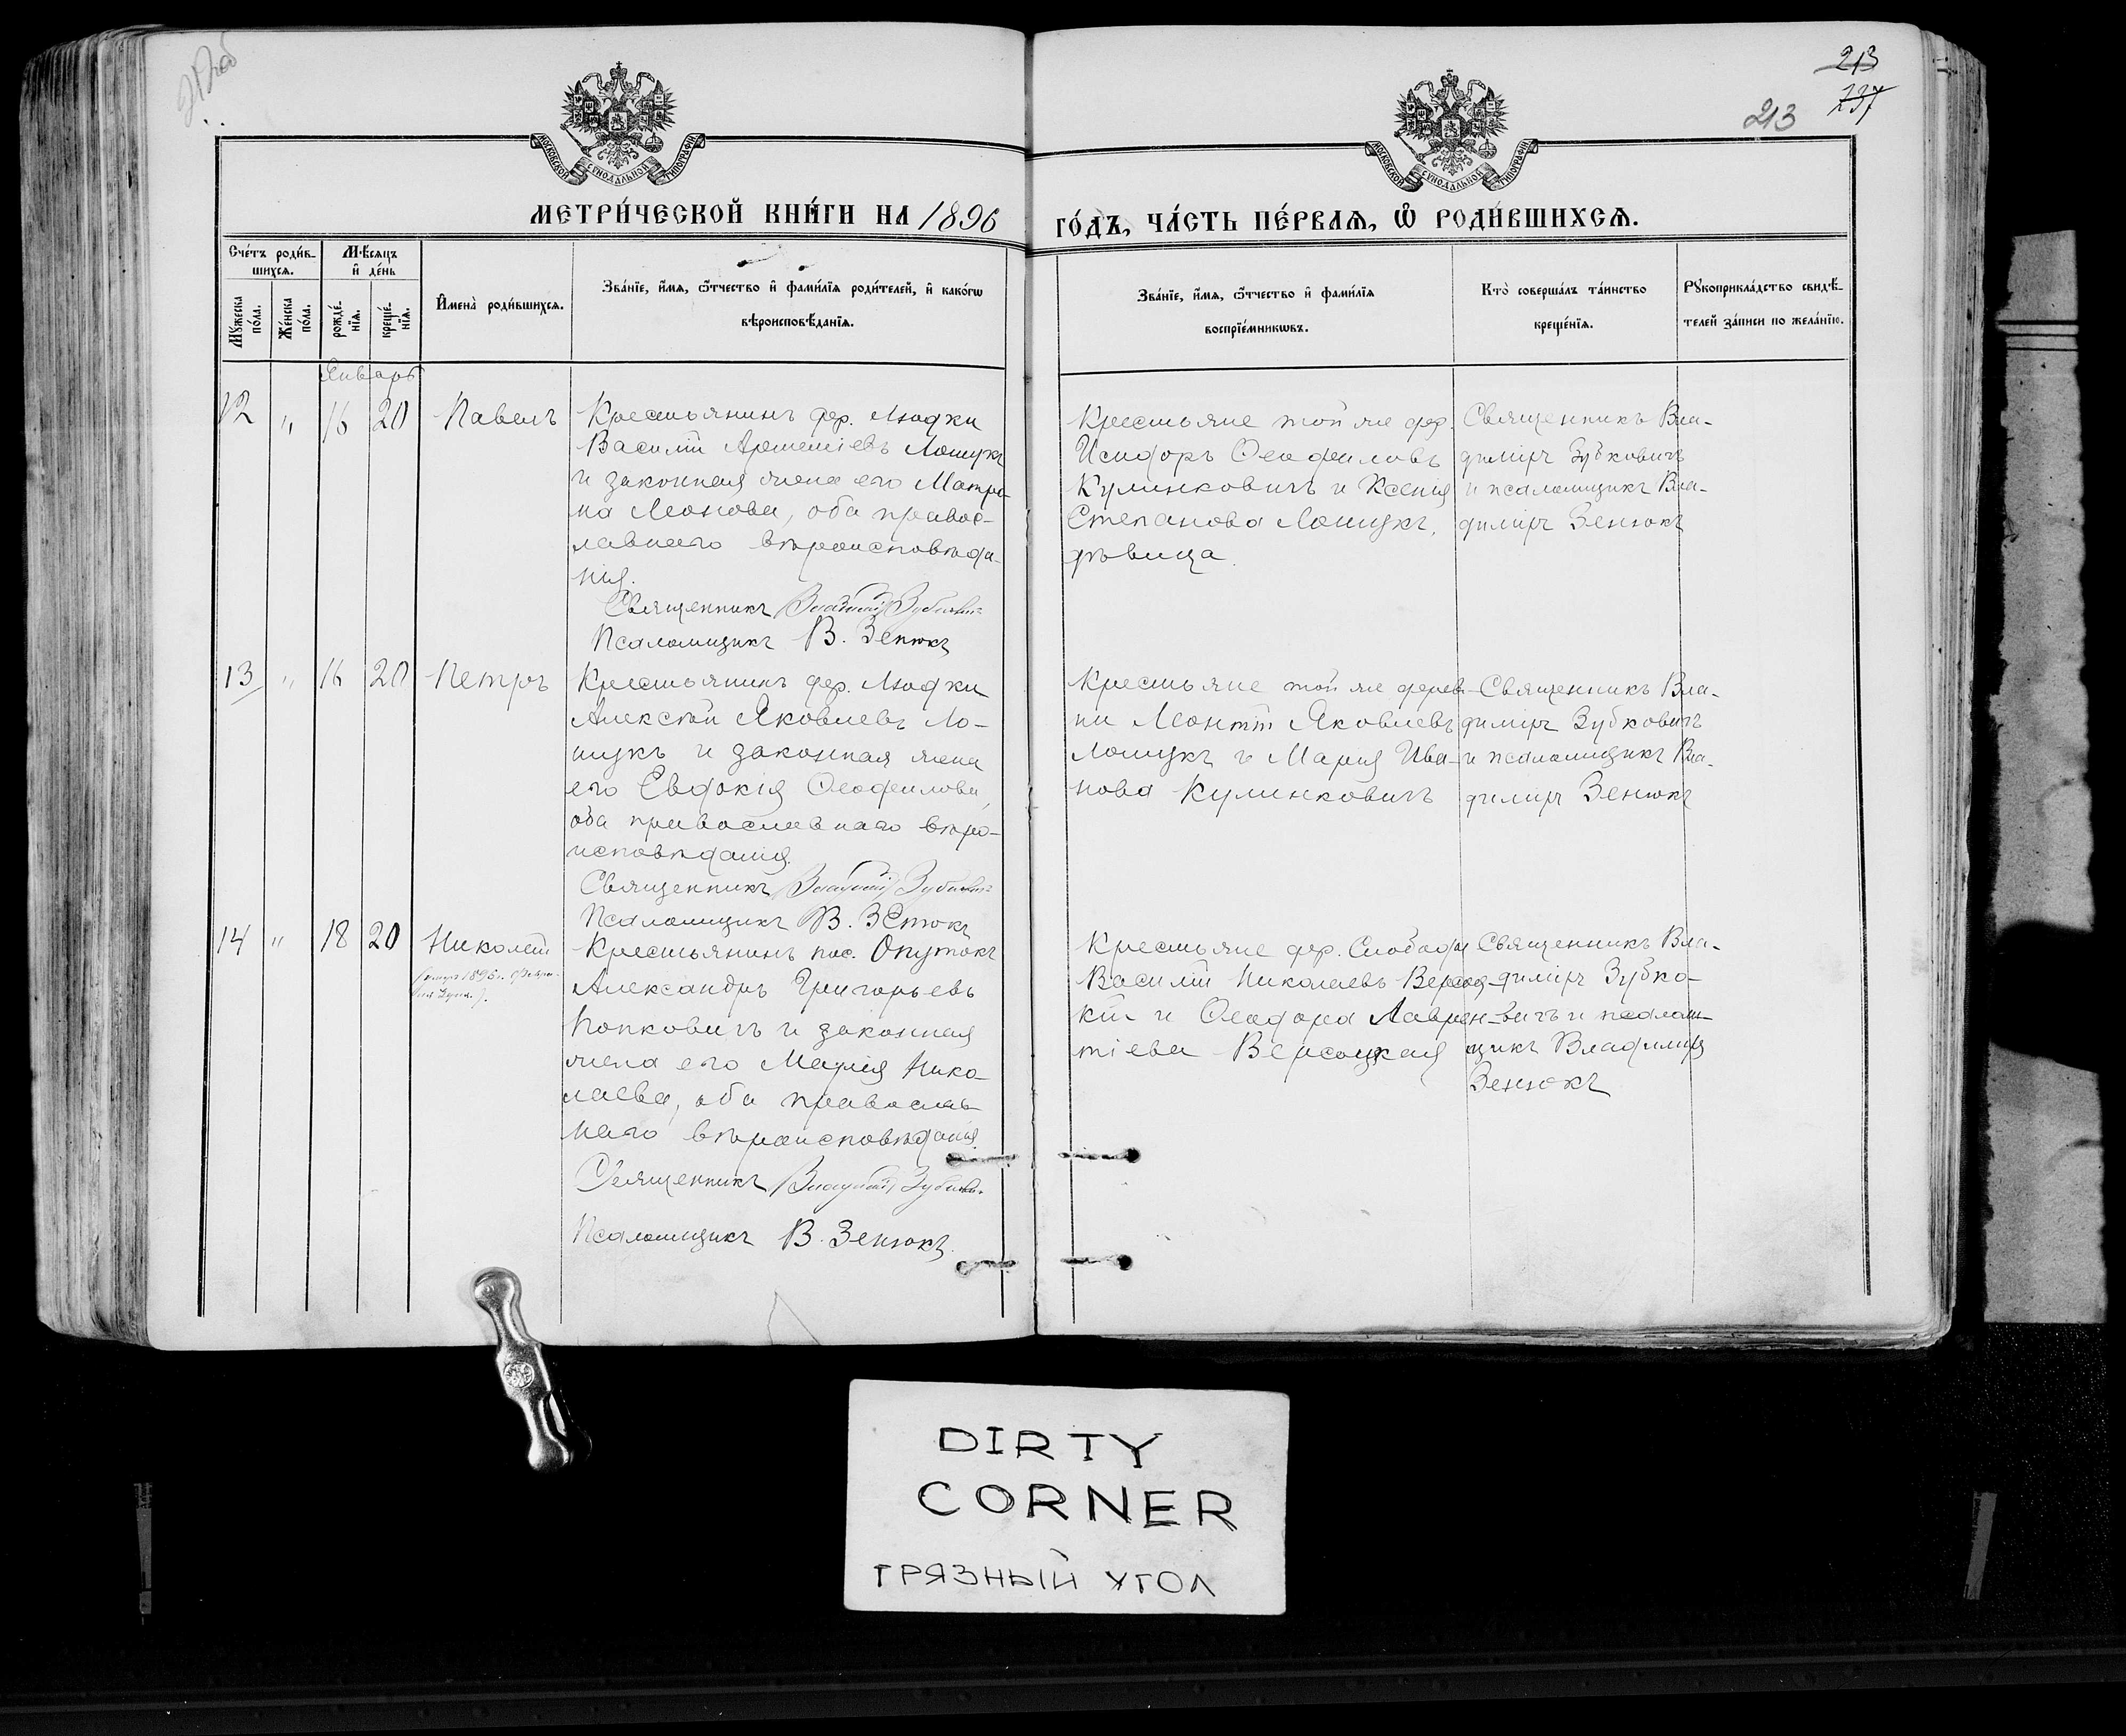 213
237
213
МОСКОВСКОЙ СѴНОДАЛЬНОЙ ТИПОГРАФІИ
МОСКОВСКОЙ СѴНОДАЛЬНОЙ ТИПОГРАФІИ
МЕТРИ́ЧЕСКОЙ КНИ́ГИ НА 1896 ГО́ДЪ, ЧА́СТЬ ПЕ́РВАѦ, Ѽ РОДИ́ВШИХСѦ.
Сче́тъ роди́в-
шихсѧ.
Мꙋжеска
по́ла.
Же́нска
по́ла.
Мѣ́сѧцъ
и҆ де́нь
рожде́-
нїѧ.
креще́-
нїѧ.
И҆мена̀ роди́вшихсѧ.
Зва́нїе, и҆́мѧ, ѻ҆́тчество и҆ фами́лїѧ роди́телей, и҆ како́гѡ
вѣроисповѣ́данїѧ.
Зва́нїе, и҆́мѧ, ѻ҆́тчество и҆ фами́лїѧ
воспрїе́мникѡвъ.
Кто̀ соверша́лъ та́инство
креще́нїѧ.
Рꙋкоприкла́дство свидѣ́-
телей за́писи по жела́нїю.
Январь
12 " 16 20 Павелъ
Крестьянинъ дер. Людки
Василій Артеміевъ Лошукъ
и законная жена его Матро-
на Леонова, оба правос-
лавнаго вѣроисповѣда-
нія.
Священникъ Владиміръ Зубковичъ
Псаломщикъ В. Зенюкъ
Крестьяне той же дер.
Исидоръ Ѳеофиловъ
Кулинковичъ и Ксенія
Степанова Лошукъ,
дѣвица.
Священникъ Вла-
диміръ Зубковичъ
и псаломщикъ Вла-
диміръ Зенюкъ
13 " 16 20 Петръ
Крестьянинъ дер. Людки
Алексѣй Яковлевъ Ло-
шукъ и законная жена
его Евдокія Ѳеофилова,
оба православнаго вѣро-
исповѣданія.
Священникъ Владиміръ Зубковичъ
Псаломщикъ В. Зенюкъ
Крестьяне той же дерев-
ни Леонтій Яковлевъ
Лошукъ и Марія Ива-
нова Кулинковичъ
Священникъ Вла-
диміръ Зубковичъ
и псаломщикъ Вла-
диміръ Зенюкъ
14 " 18 20 Николай
Крестьянинъ пос. Опутокъ
Александръ Григорьевъ
Попковичъ и законная
жена его Марія Нико-
лаева, оба православ-
наго вѣроисповѣданія.
Священникъ Владиміръ Зубковичъ
Псаломщикъ В. Зенюкъ.
Крестьяне дер. Слободы
Василій Николаевъ Версоц-
кій и Ѳеодора Лаврен-
тіева Версоцкая
Священникъ Вла-
диміръ Зубко-
вичъ и псалом-
щикъ Владиміръ
Зенюкъ
DIRTY
CORNER
ГРЯЗНЫЙ УГОЛ